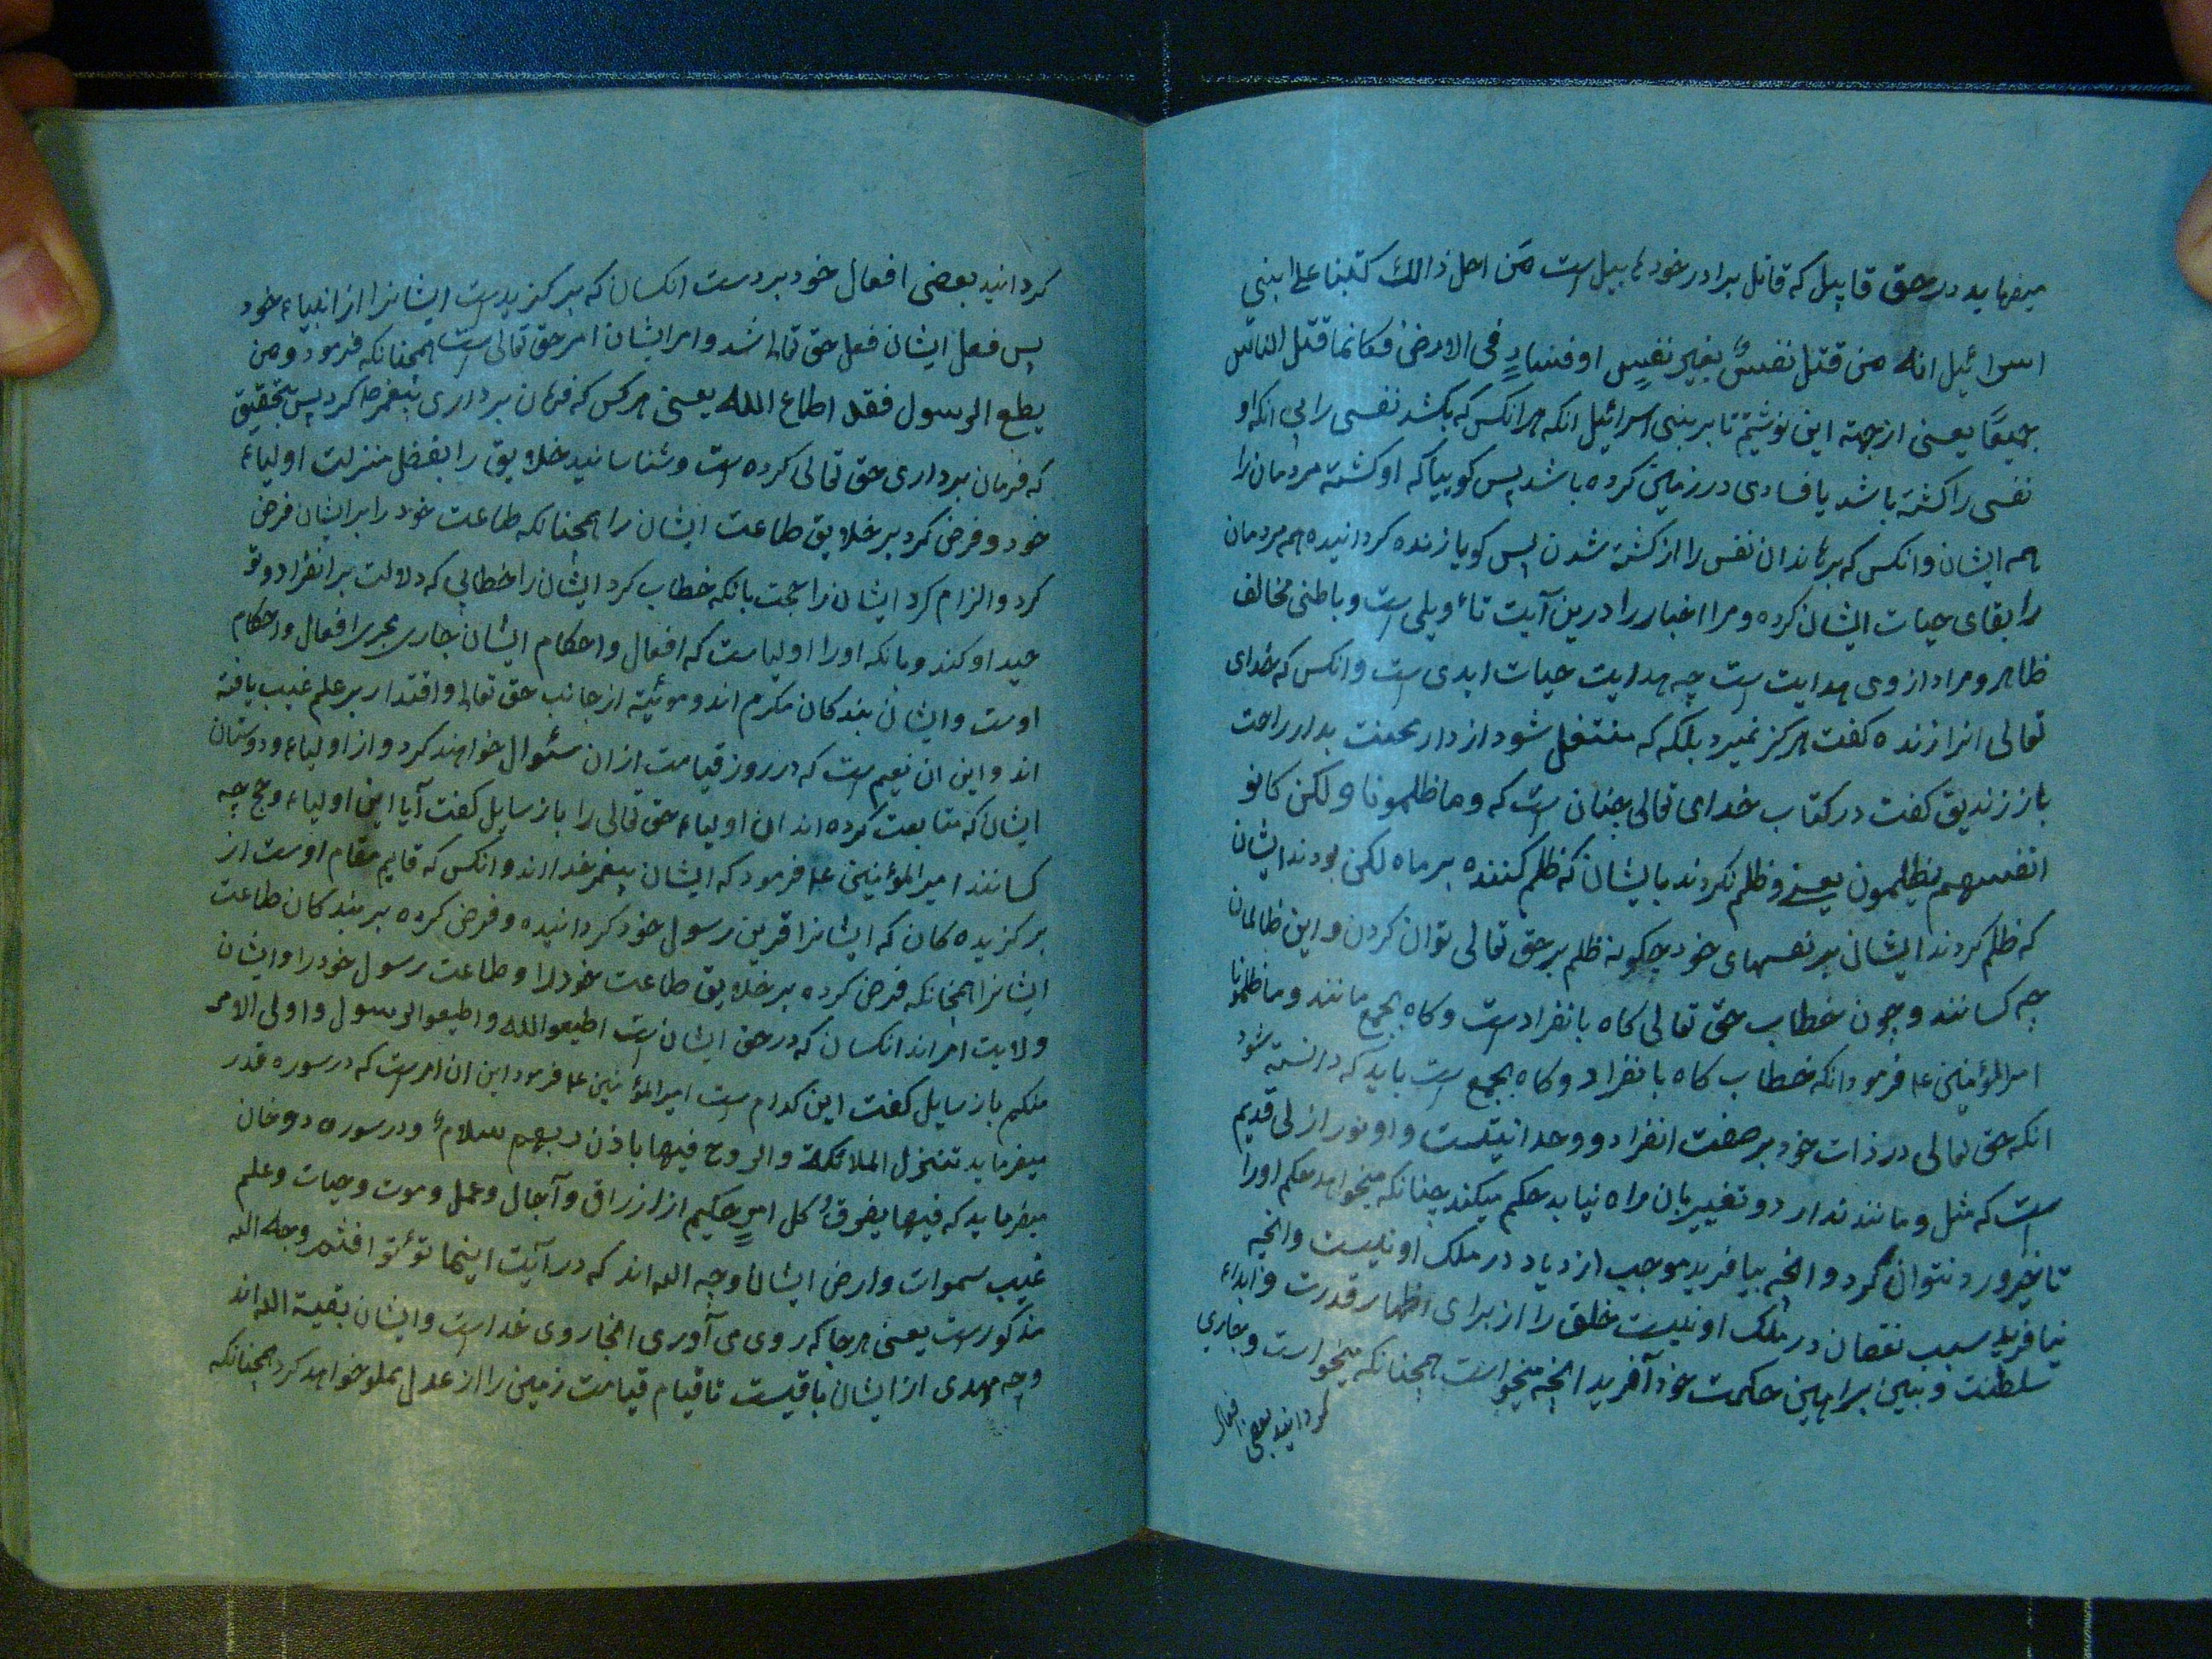 میفرماید در حق قابیل که قاتل برادر خود هابیل است من اجل ذالك كتبنا على ابنی
اسرائیل انه من قتل نفسٌ بغیر نفسٍ او فسادٍ فی الارض فکانما قتل الناس
جمیعًا یعنی ازجهته این نوشتیم تا بر بنی اسرائیل انکه هرانکس که بکشد نفسی را بی انکه او
نفسی را کشته باشد یا فسادی در زمین کرده باشد پس کوییا که او کشته مردمان را
همه ایشان وانکس که برهاند ان نفس را از کشته شدن پس کویا زنده کردانیده همه مردمان
را بقای حیات ایشان کرده و مرا اخبار را درین آیت تاٴویلی است و باطنی مخالف
ظاهر و مراد از وی هدایت است چه هدایت حیات ابدی است و انکس که خدای
تعالی انرا زنده کفت هرکز نمیرد بلکه که منتقل شود از دار محنت بدار راحت
باز زندیق کفت در کتاب خدای تعالی چنان است که وما ظلمونا و لکن کانو
انفسهم یظلمون یعنی و ظلم نکردند بایشان که ظلم کننده بر ماه لکن بودند ایشان
که ظلم کردند ایشان بر نفسهای خود چکونه ظلم بر حق تعالی توان کردن و این ظالمان
چه کسانند و چون خطاب حق تعالی کاه بانفرادست و کاه بجمع مانند و ما ظلمونا
امیرالمؤمنین ع فرمود انکه خطاب کاه بانفراد و کاه بجمع است باید که دانسته شود
انکه حق تعالی در ذات خود بر صفت انفراد و وحدانیتست و او نور ازلی قدیم
است که مثل و مانند ندارد و تغییر بان راه نیابد حکم میکند چنانکه میخواهد حکم اورا
تاخیر و رد نتوان کرد و انچه بیافرید موجب ازدیاد در ملک او نیست وانچه
نیافرید سبب نقصان در ملک او نیست خلق را از برای اظهار قدرت و ابداء
سلطنت و تبیین براهین حکمت خود آفرید انچه میخواست همچنانکه میخواست و بجاری
کردانید بعضی افعال
کردانید بعضی افعال خود بر دست انکسان که برکزیدست ایشانرا از انبیاء خود
پس فعل ایشان فعل حق تعالی شد و امر ایشان امر حق تعالی است همچنانکه فرمود و من
یطع الرسول فقد اطاع الله یعنی هرکس که فرمان برداری پیغمبر ص کرد پس بتحقیق
که فرمان برداری حق تعالی کرده است و شناسانید خلایق را بفضل منزلت اولیاء
خود و فرض کرد بر خلایق طاعت ایشان را همچنانکه طاعت خود را بر ایشان فرض
کرد و الزام کرد ایشان را حجت بانکه خطاب کرد ایشان را خطابی که دلالت بر انفراد و تو
حید او کند و بانکه اورا اولیاست که افعال و احکام ایشان جاری مجرای افعال و احکام
اوست و ایشان بندکان مکرم اند و موئیّد از جانب حق تعالی و اقتدار بر علم غیب یافته
اند و این ان نعیم است که در روز قیامت از ان سئوال خواهند کرد و از اولیاء و دوستان
ایشان که متابعت کرده اند ان اولیاء حق تعالی را باز سایل کفت آیا این اولیاء و حجج چه
کسانند امیرالمؤمنین ع فرمود که ایشان پیغمبر خدا اند و انکس که قایم مقام اوست از
برکزیده کان که ایشانرا قرین رسول خود کردانیده و فرض کرده بر بندکان طاعت
ایشانرا همچنانکه فرض کرده بر خلایق طاعت خود را و طاعت رسول خود را و ایشان
ولایت امر اند انکسان که در حق ایشان است اطیعوا الله و اطیعوا الرسول و اولی الامر
منکم باز سایل کفت این کدام است امیرالمؤمنین ع فرمود این ان امرست که در سوره قدر
میفرماید تنزل الملائکة والروح فیها باذن ربهم سلامٌ و در سوره دوخان
میفرماید که فیها یفرقُ کل امرٍ حکیم از ارزاق و آجال و عمل و موت و حیات و علم
غیب سموات و ارض ایشان وجه الله اند که در آیت اینما توٴتوا فثم وجه الله
مذکورست یعنی هرجا که روی می آوری انجا روی خداست و ایشان بقیة الله اند
وچه مهدی از ایشان باقیست تا قیام قیامت زمین را از عدل مملو خواهد کرد همچنانکه